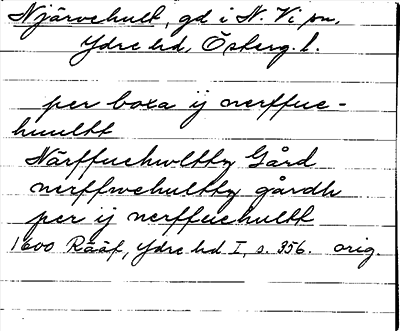 Njärvehult, gd i N. Vi sn,
Ydre hd, Österg. l.
per boxa ij nerffue-
huultt
Närffuehwltty Gård
nerffwehultty gårdh
per ij nerffuehultt
1600 Rääf, Ydre hd I, s. 356. orig.